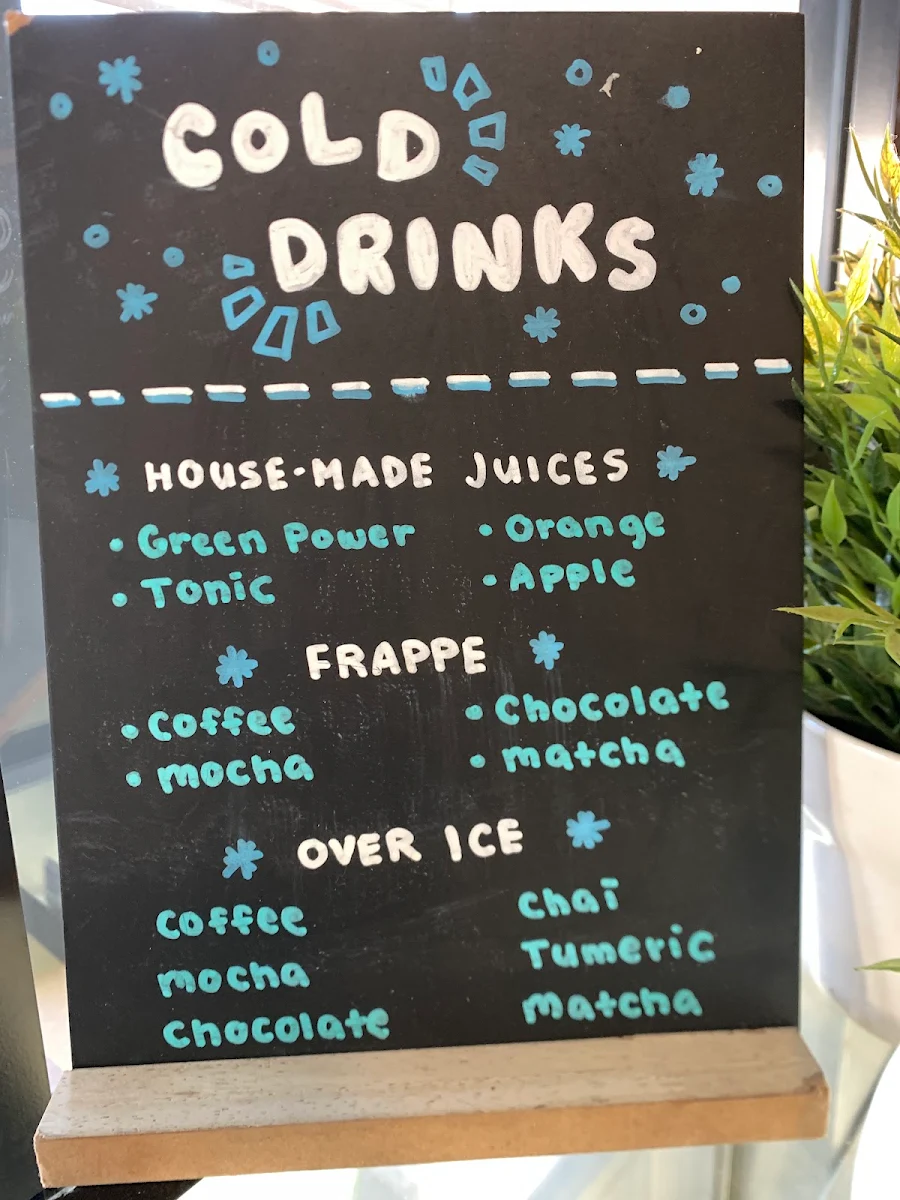 COLD
DRINKS
HOUSE-MADE JUICES
• Green Power • Orange
• Tonic • Apple
FRAPPE
• Coffee • Chocolate
• mocha • matcha
OVER ICE
Coffee Chai
mocha Tumeric
Chocolate Matcha